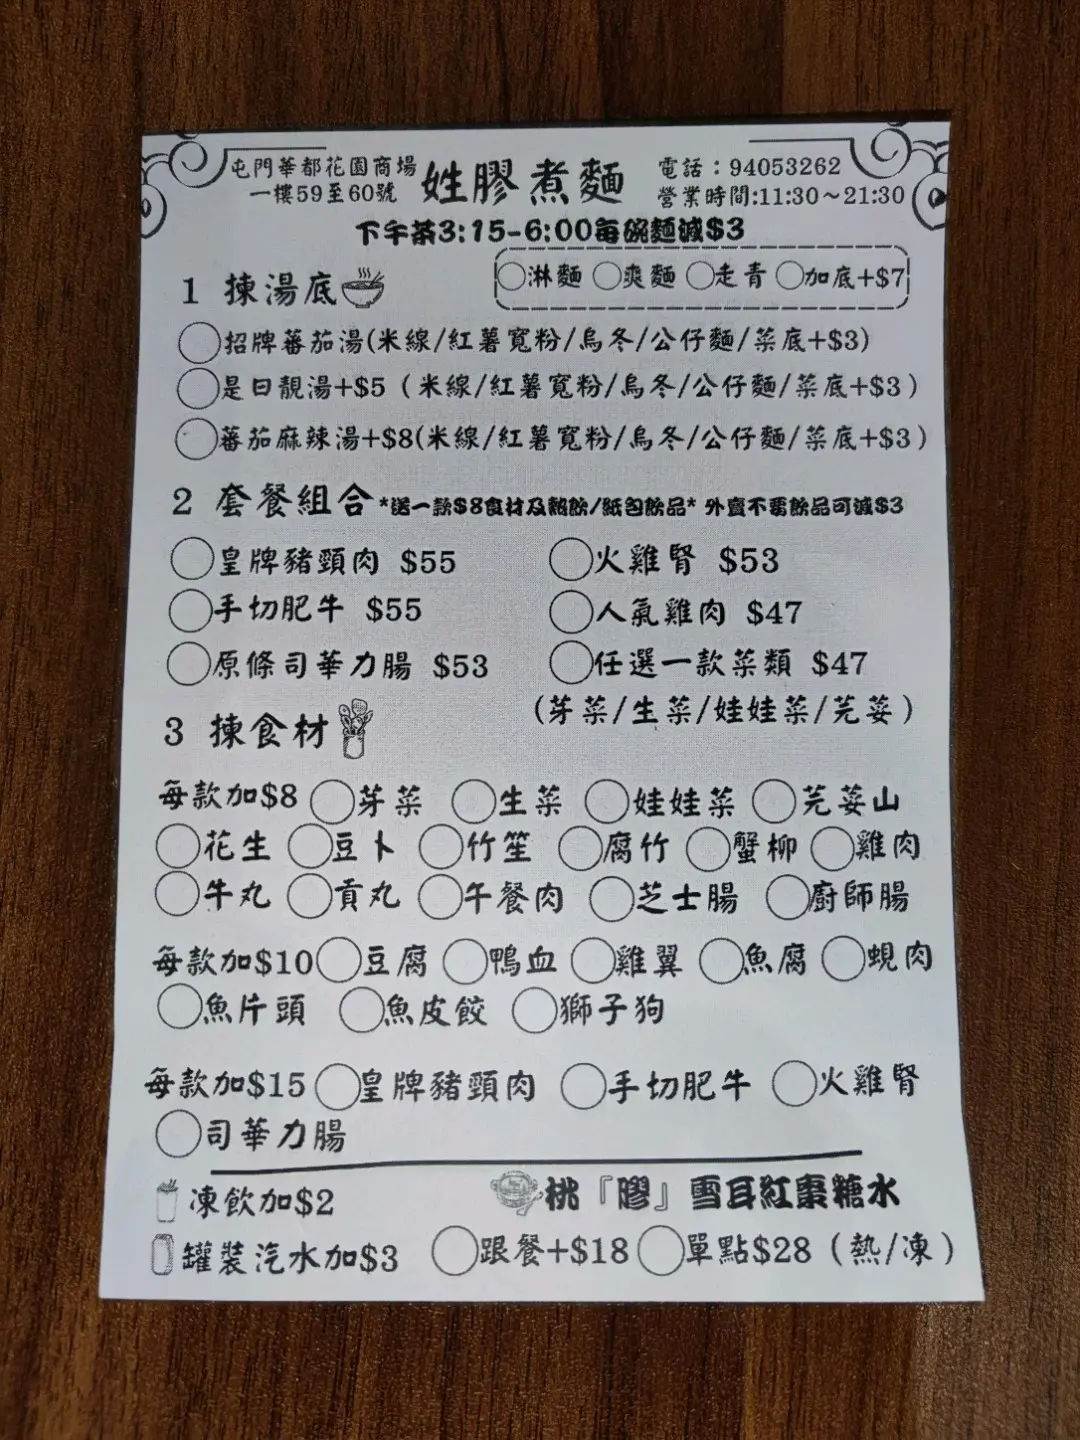 屯門華都花園商場
一樓59至60號
姓膠煮麵
電話：94053262
營業時間:11:30～21:30
下午茶3:15-6:00每碗麵減$3
1 揀湯底
淋麵 爽麵 走青 加底+$7
招牌蕃茄湯(米線/紅薯寬粉/烏冬/公仔麵/菜底+$3)
是日靚湯+$5（米線/紅薯寬粉/烏冬/公仔麵/菜底+$3）
蕃茄麻辣湯+$8(米線/紅薯寬粉/烏冬/公仔麵/菜底+$3）
2 套餐組合 *送一款$8食材及熱飲/紙包飲品* 外賣不需飲品可減$3
皇牌豬頸肉 $55 火雞腎 $53
手切肥牛 $55 人氣雞肉 $47
原條司華力腸 $53 任選一款菜類 $47
(芽菜/生菜/娃娃菜/芫荽）
3 揀食材
每款加$8 芽菜 生菜 娃娃菜 芫荽山
花生 豆卜 竹笙 腐竹 蟹柳 雞肉
牛丸 貢丸 午餐肉 芝士腸 廚師腸
每款加$10 豆腐 鴨血 雞翼 魚腐 蜆肉
魚片頭 魚皮餃 獅子狗
每款加$15 皇牌豬頸肉 手切肥牛 火雞腎
司華力腸
凍飲加$2
罐裝汽水加$3
桃『膠』雪耳紅棗糖水
跟餐+$18 單點$28（熱/凍）